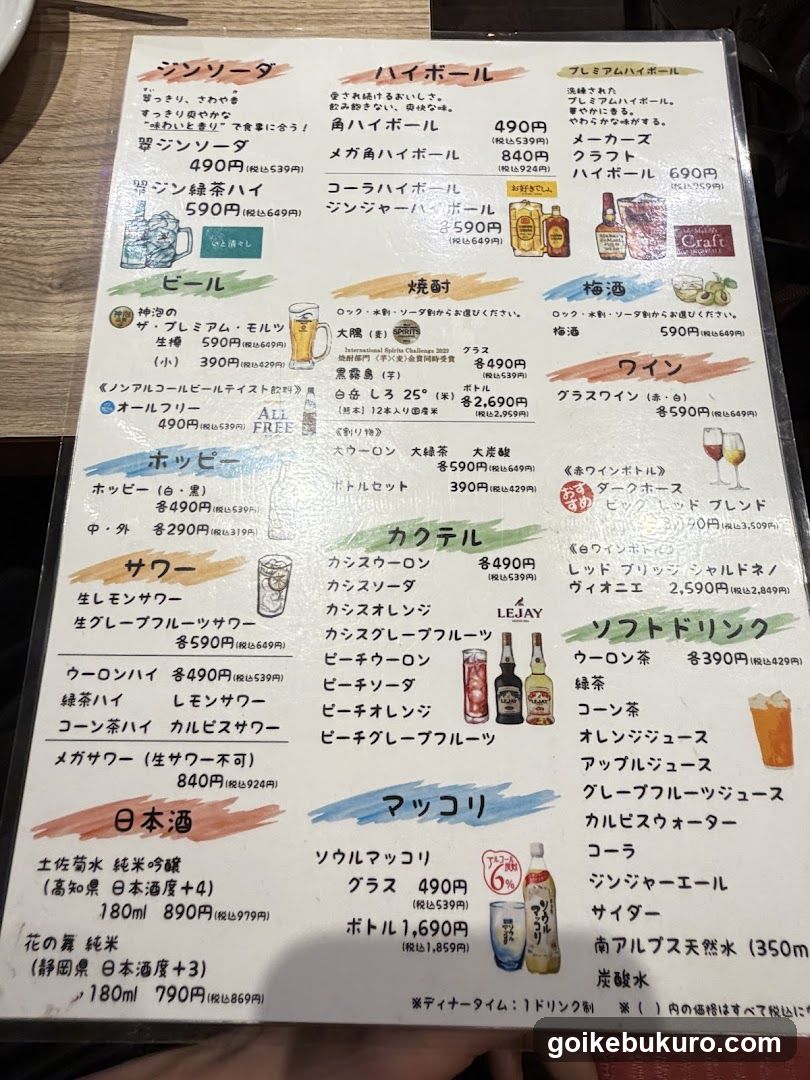 ジンソーダ
翠っきり、さわや香
すい
すっきり爽やかな
"味わいと香り"で食事に合う！
翠ジンソーダ
490円(税込539円)
翠ジン緑茶ハイ
590円(税込649円)
いと清々し
ビール
神泡の
ザ・プレミアム・モルツ
生樽 590円(税込649円)
(小) 390円(税込429円)
《ノンアルコールビールテイスト飲料》
オールフリー
490円(税込539円)
ALL FREE
ホッピー
ホッピー (白・黒)
各490円(税込539円)
中・外 各290円(税込319円)
サワー
生レモンサワー
生グレープフルーツサワー
各590円(税込649円)
ウーロンハイ 各490円(税込539円)
緑茶ハイ レモンサワー
コーン茶ハイ カルピスサワー
メガサワー (生サワー不可)
840円(税込924円)
日本酒
土佐菊水 純米吟醸
(高知県 日本酒度+4)
180ml 890円(税込979円)
花の舞 純米
(静岡県 日本酒度+3)
180ml 790円(税込869円)
ハイボール
愛され続けるおいしさ。
飲み飽きない、爽快な味。
角ハイボール 490円
(税込539円)
メガ角ハイボール 840円
(税込924円)
コーラハイボール
ジンジャーハイボール
各590円
(税込649円)
お好きでしょ
焼酎
ロック・水割・ソーダ割からお選びください。
大隅 (麦)
SPIRITS
International Spirits Challenge 2023
焼酎部門 〈芋〉〈麦〉金賞同時受賞
グラス
各490円
(税込539円)
黒霧島 (芋)
白岳 しろ 25° (米)
[熊本] 12本入り国産米
ボトル
各2,690円
(税込2,959円)
《割り物》
大ウーロン 大緑茶 大炭酸
各590円(税込649円)
ボトルセット 390円(税込429円)
カクテル
カシスウーロン 各490円
(税込539円)
カシスソーダ
カシスオレンジ
カシスグレープフルーツ
ピーチウーロン
ピーチソーダ
ピーチオレンジ
ピーチグレープフルーツ
LEJAY
マッコリ
ソウルマッコリ
グラス 490円
(税込539円)
ボトル 1,690円
(税込1,859円)
アルコール度数
6%
ソウルマッコリ
プレミアムハイボール
洗練された
プレミアムハイボール。
華やかに香る。
やわらかな味がする。
メーカーズ
クラフト
ハイボール 690円
(税込759円)
Craft
梅酒
ロック・水割・ソーダ割からお選びください。
梅酒 590円(税込649円)
ワイン
グラスワイン (赤・白)
各590円(税込649円)
《赤ワインボトル》
おすすめ
ダークホース
ビッグ レッド ブレンド
(税込3,509円)
《白ワインボトル》
レッド ブリッジ シャルドネ/
ヴィオニエ 2,590円(税込2,849円)
ソフトドリンク
ウーロン茶 各390円(税込429円)
緑茶
コーン茶
オレンジジュース
アップルジュース
グレープフルーツジュース
カルピスウォーター
コーラ
ジンジャーエール
サイダー
南アルプス天然水 (350m
炭酸水
※ディナータイム：1ドリンク制 ※( )内の価格はすべて税込に
goikebukuro.com